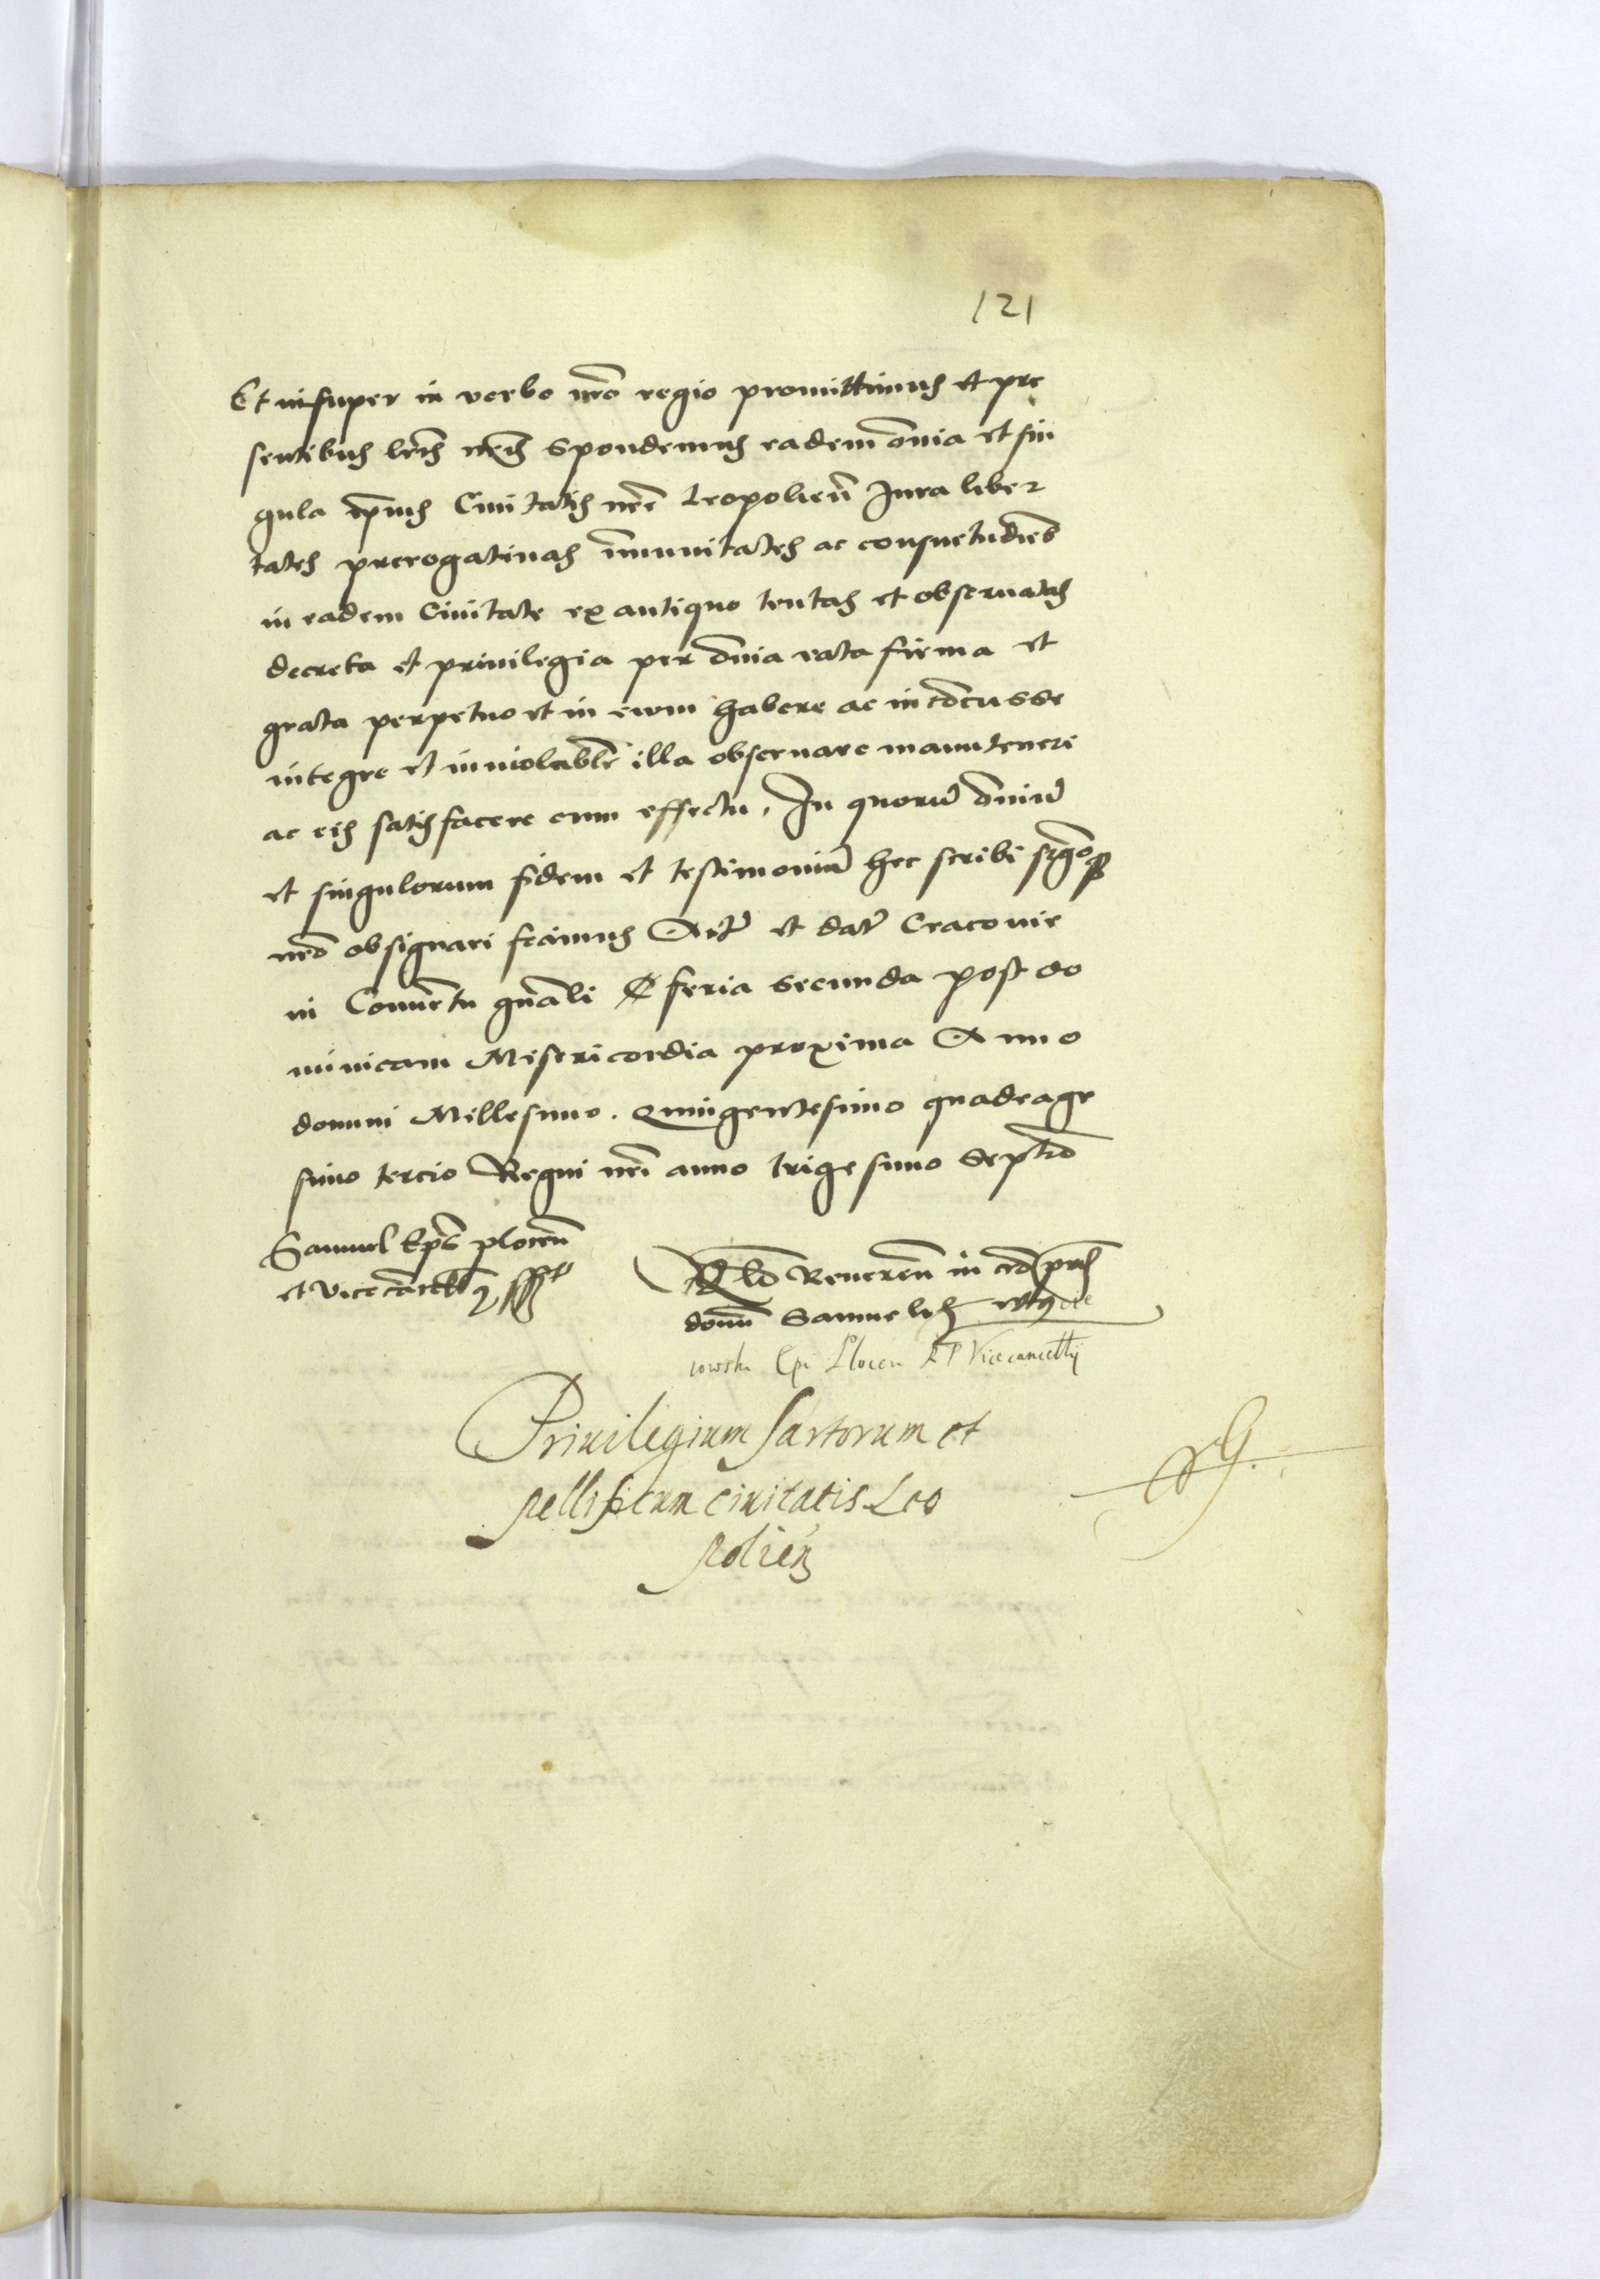 121
Et insuper in verbo nro regio promittimus et pre
sentibus lris nris spondemus eadem omnia et sin
gula ipius Civitatis nre Leopolien Jura liber
tates prerogativas imunitates ac consuetudies
in eadem Civitate ex antiquo tentas et observatas
decreta et privilegia per omnia rata firma et
grata perpetuo et in evum habere ac inconcusse
integre et inviolabilr illa observare manuteneri
ac eis satisfacere cum effectu. In quoru omniu
et singulorum fidem et testimoniu hec scribi sigoq
nro obsignari fecimus Act et dat Cracovie
in Conventu gnali feria secunda post do
minicam Misericordia proxima Anno
domini Millesimo. Quingentesimo quadrage
simo tercio Regni nri anno trigesimo septio
Samuel Eps plocen
et vicecancell sspt
Rlo Reveren in cro pris
domi Samuelis
iowski Epi Plocen R P Vicecancellij
Privilegium sartorum et
pellificum civitatis Leo
polien